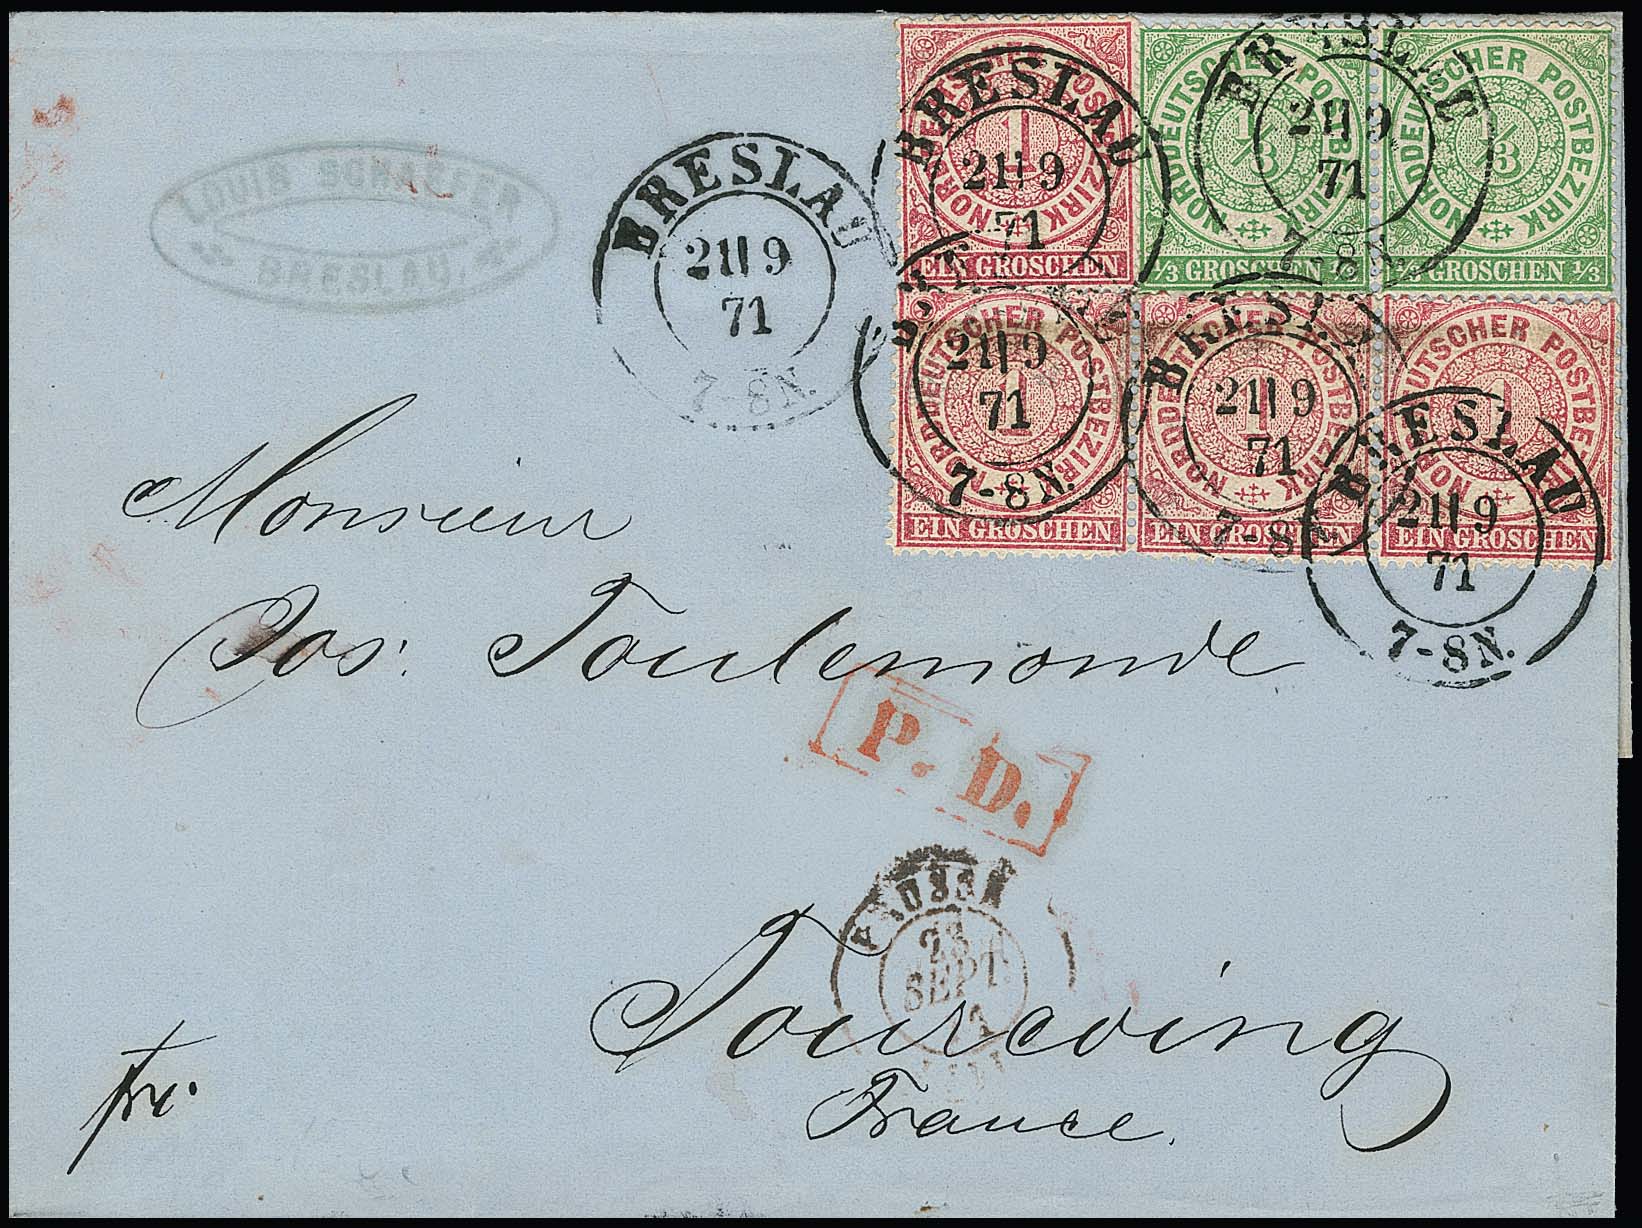 LOUIS SCHAEFER
BRESLAU.
BRESLAU
21 9
71
7-8N.
NORDDEUTSCHER POSTBEZIRK
1
EIN GROSCHEN
BRESLAU
21 9
71
NORDDEUTSCHER POSTBEZIRK
1/3
1/3 GROSCHEN 1/3
NORDDEUTSCHER POSTBEZIRK
1/3
1/3 GROSCHEN 1/3
BRESLAU
21 9
71
7-8N.
NORDDEUTSCHER POSTBEZIRK
1
EIN GROSCHEN
BRESLAU
21 9
71
7-8N.
NORDDEUTSCHER POSTBEZIRK
1
EIN GROSCHEN
BRESLAU
21 9
71
7-8
NORDDEUTSCHER POSTBEZIRK
1
EIN GROSCHEN
BRESLAU
21 9
71
7-8N.
Monsieur
Jos: Toulemonde
P. D.
PRUSSE
23
SEPT.
Tourcoing
France.